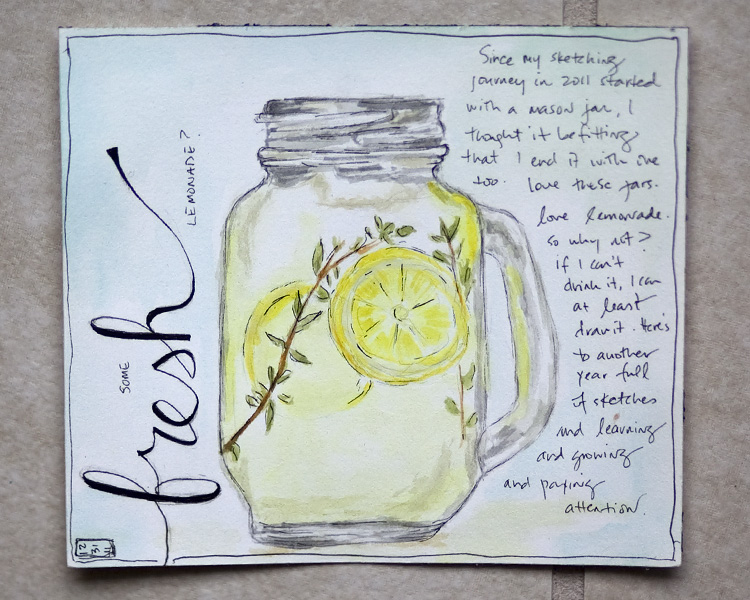 some
fresh
LEMONADE?
Since my sketching
journey in 2011 started
with a mason jar, I
thought it befitting
that I end it with one
too. love these jars.
love lemonade.
so why not?
if I can't
drink it, I can
at least
draw it. Here's
to another
year full
of sketches
and learning
and growing
and paying
attention.
12
31